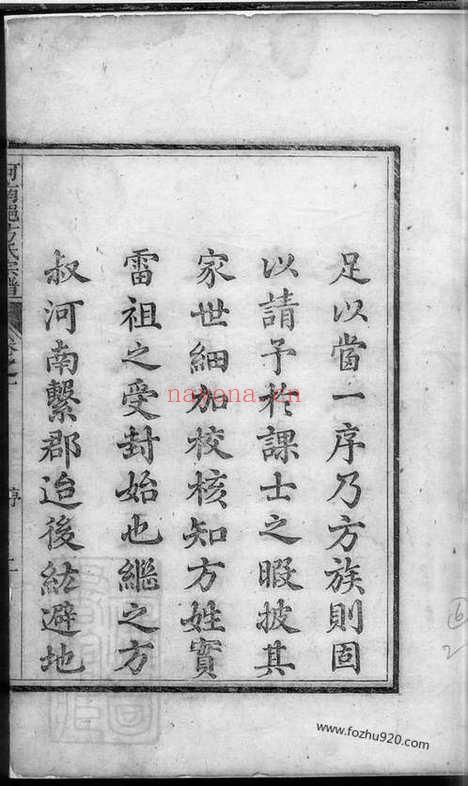 足以當一序乃方族則固
以請予於課士之暇披其
家世細加校核知方姓實
雷祖之受封始也繼之方
叔河南繫郡迨後紘避地
河南
方氏宗譜
序
nayona.cn
www.fozhu920.com